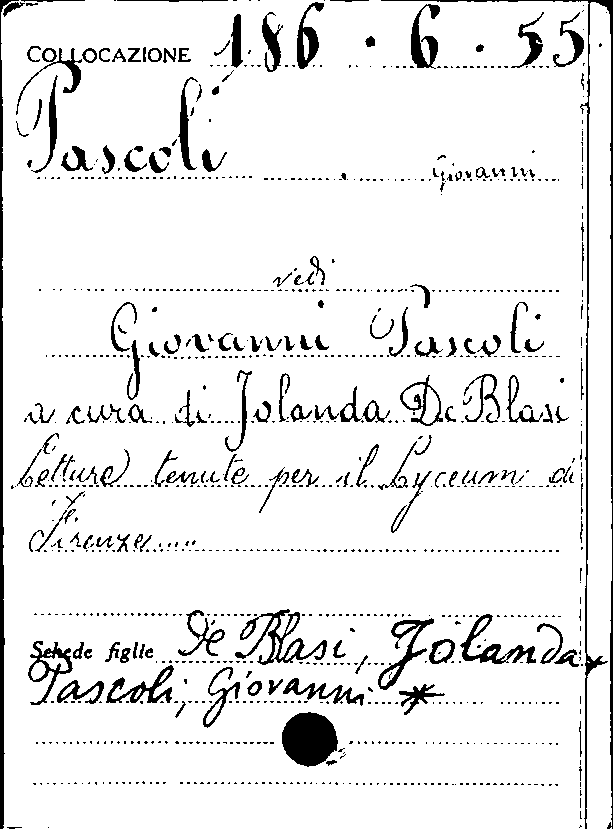 COLLOCAZIONE 186 . 6 . 55
Pascoli . Giovanni
vedi
Giovanni Pascoli
a cura di Jolanda De Blasi
Letture tenute per il Lyceum di
Firenze....
Schede figlie De Blasi, Jolanda *
Pascoli, Giovanni *